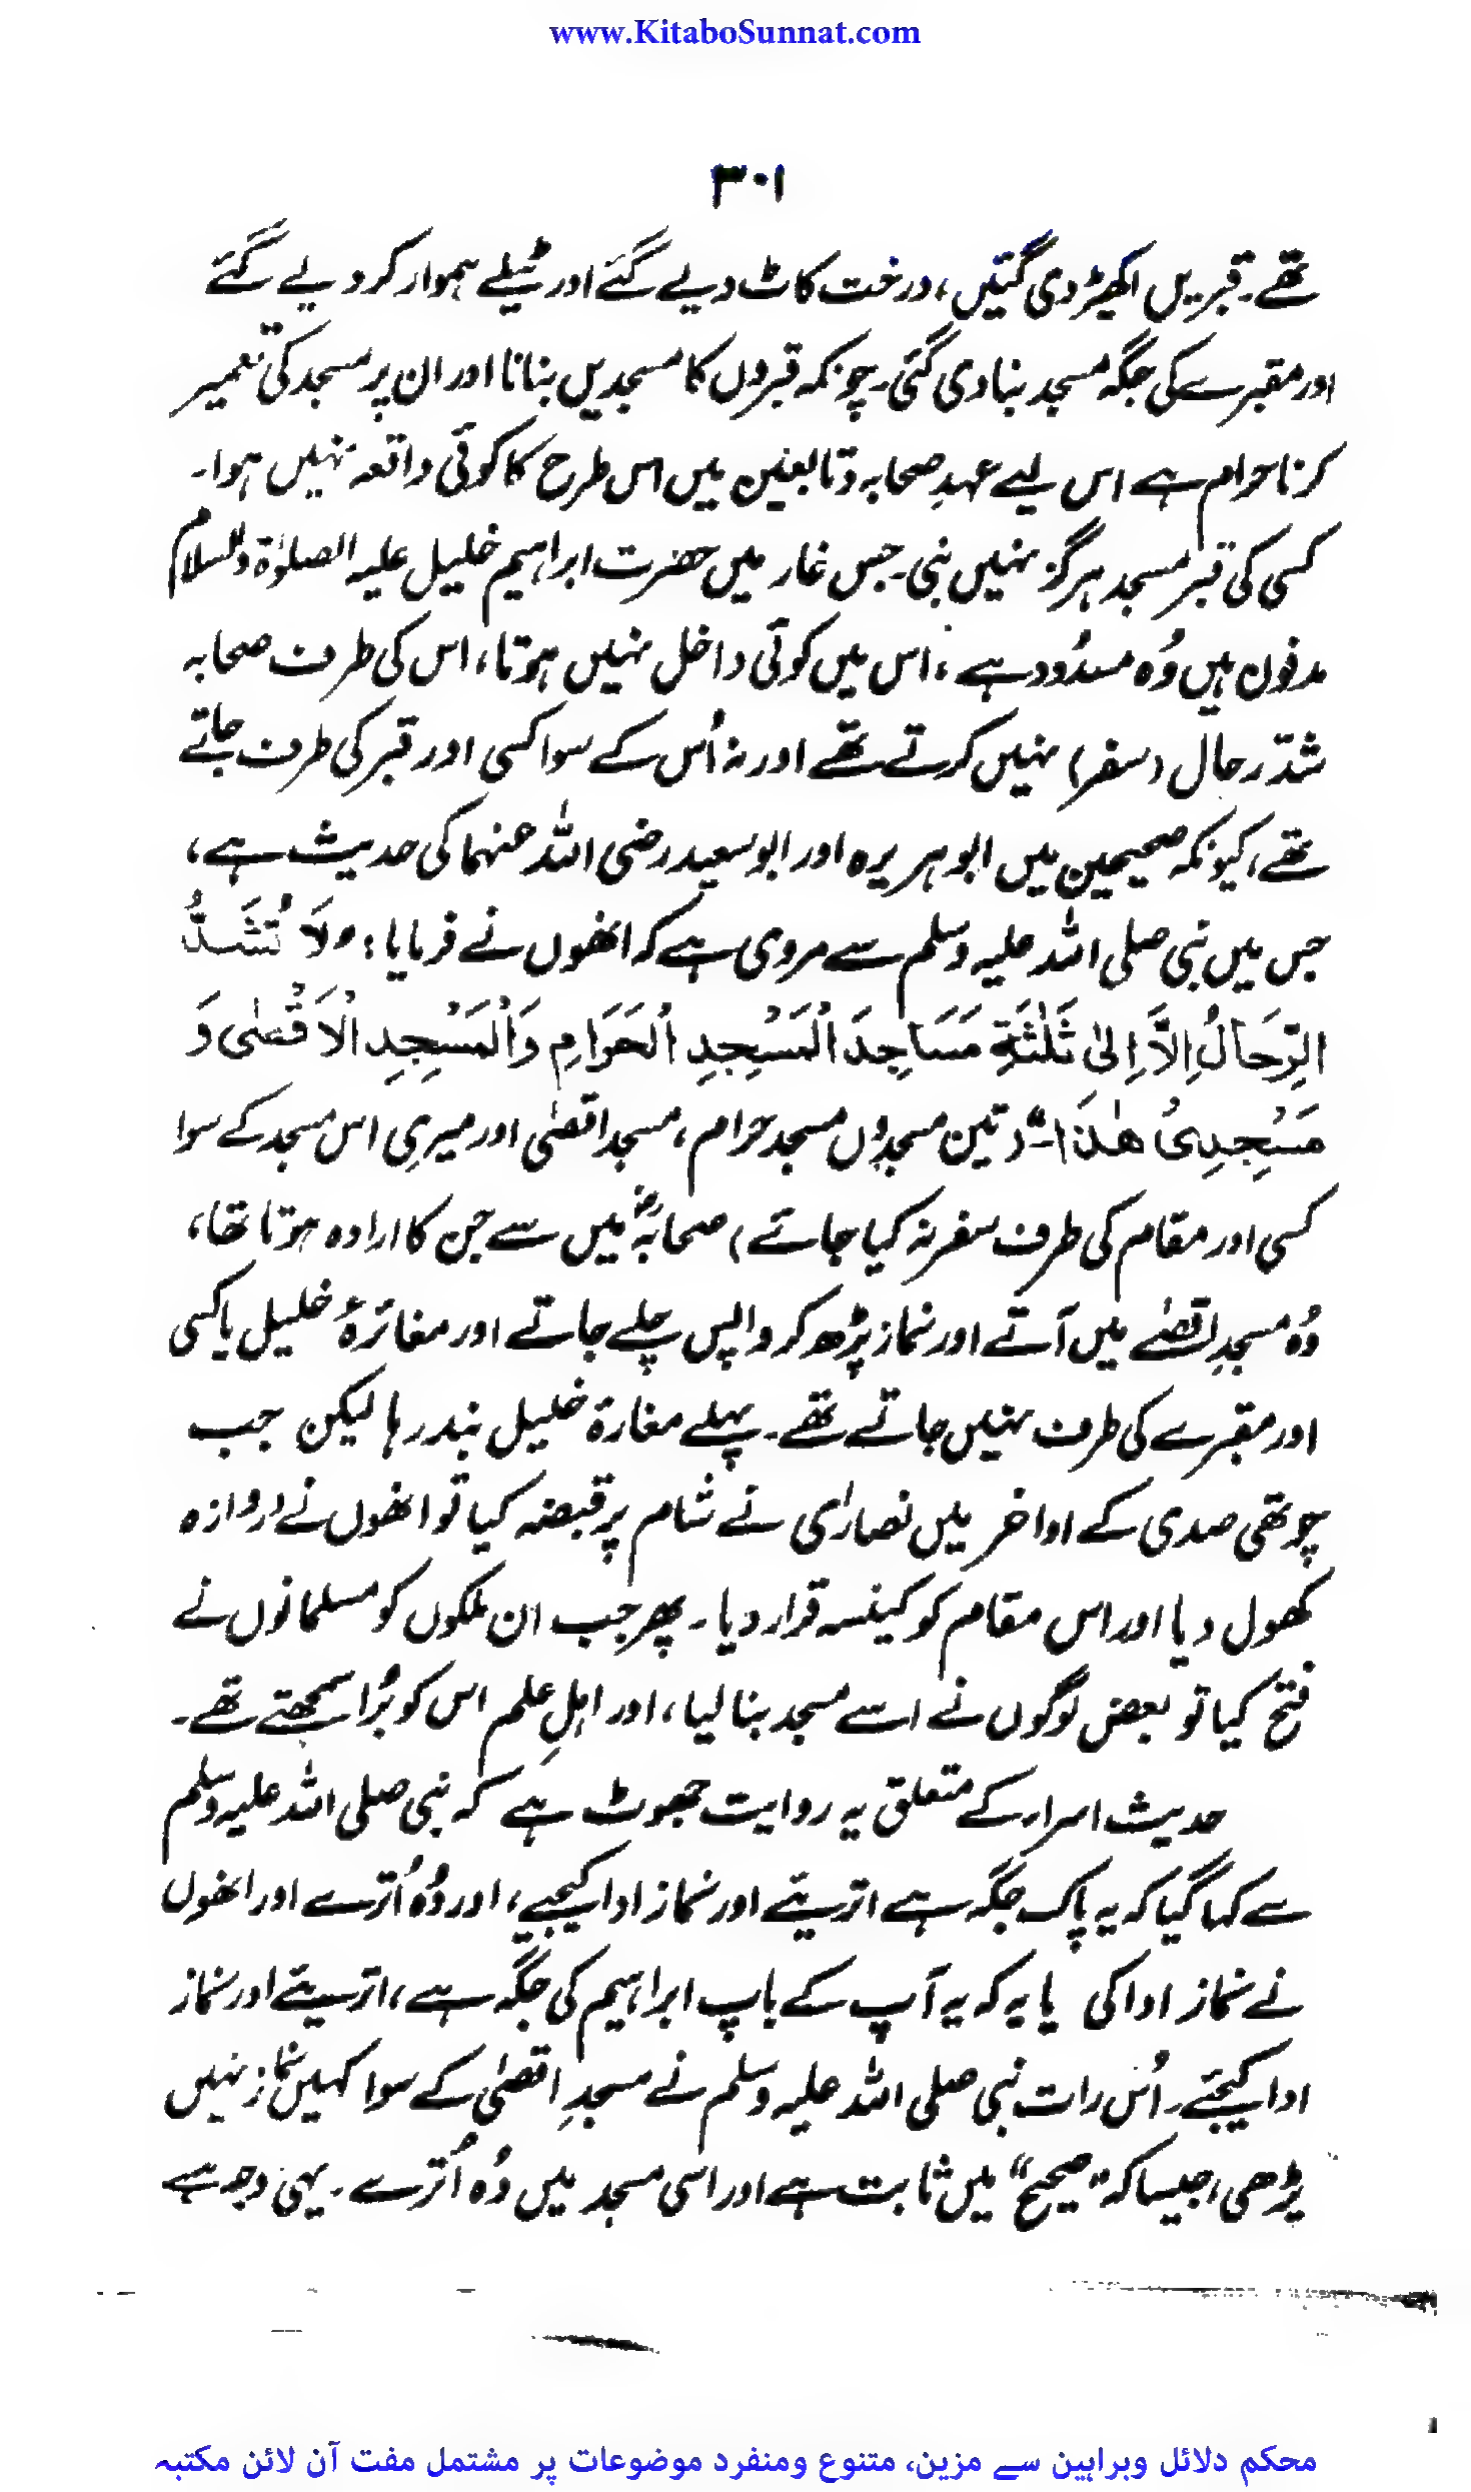 www.KitaboSunnat.com
۳۰۱
تھے۔ قبریں اکھیڑ دی گئیں، درخت کاٹ دیے گئے اور ٹیلے ہموار کر دیے گئے
اور مقبرے کی جگہ مسجد بنا دی گئی۔ چونکہ قبروں کا مسجدیں بنانا اور ان پر مسجد کی تعمیر
کرنا حرام ہے اس لیے عہدِ صحابہ و تابعین میں اس طرح کا کوئی واقعہ نہیں ہوا۔
کسی کی قبر مسجد ہرگز نہیں بنی۔ جس غار میں حضرت ابراہیم خلیل علیہ الصلوٰۃ والسلام
مدفون ہیں وُہ مسدُود ہے، اس میں کوئی داخل نہیں ہوتا، اس کی طرف صحابہ
شدّ رحال (سفر) نہیں کرتے تھے اور نہ اُس کے سوا کسی اور قبر کی طرف جاتے
تھے، کیونکہ صحیحین میں ابو ہریرہ اور ابو سعید رضی اللہ عنہما کی حدیث ہے،
جس میں نبی صلی اللہ علیہ وسلم سے مروی ہے کہ انھوں نے فرمایا: "لَا تُشَدُّ
الرِّحَالُ اِلَّا اِلیٰ ثَلٰثَةِ مَسَاجِدَ اَلْمَسْجِدِ الْحَرَامِ وَالْمَسْجِدِ الْاَقْصٰی وَ
مَسْجِدِیْ هٰذَا۔" (تین مسجدوں مسجد حرام، مسجد اقصیٰ اور میری اس مسجد کے سوا
کسی اور مقام کی طرف سفر نہ کیا جائے) صحابہؓ میں سے جن کا ارادہ ہوتا تھا،
وُہ مسجدِ اقصٰے میں آتے اور نماز پڑھ کر واپس چلے جاتے اور مغارۂ خلیل یا کسی
اور مقبرے کی طرف نہیں جاتے تھے۔ پہلے مغارۃ خلیل بند رہا لیکن جب
چوتھی صدی کے اواخر میں نصاریٰ نے شام پر قبضہ کیا تو انھوں نے دروازہ
کھول دیا اور اس مقام کو کینسہ قرار دیا۔ پھر جب ان ملکوں کو مسلمانوں نے
فتح کیا تو بعض لوگوں نے اسے مسجد بنا لیا، اور اہلِ علم اس کو بُرا سمجھتے تھے۔
حدیث اسراء کے متعلق یہ روایت جھوٹ ہے کہ نبی صلی اللہ علیہ وسلم
سے کہا گیا کہ یہ پاک جگہ ہے اتریئے اور نماز ادا کیجیے، اور وُہ اُترے اور انھوں
نے نماز ادا کی یا یہ کہ یہ آپ کے باپ ابراہیم کی جگہ ہے، اتریئے اور نماز
ادا کیجئے۔ اُس رات نبی صلی اللہ علیہ وسلم نے مسجدِ اقصیٰ کے سوا کہیں نماز نہیں
پڑھی، جیسا کہ "صحیح" میں ثابت ہے اور اسی مسجد میں وُہ اُترے۔ یہی وجہ ہے
محکم دلائل وبراہین سے مزین، متنوع ومنفرد موضوعات پر مشتمل مفت آن لائن مکتبہ